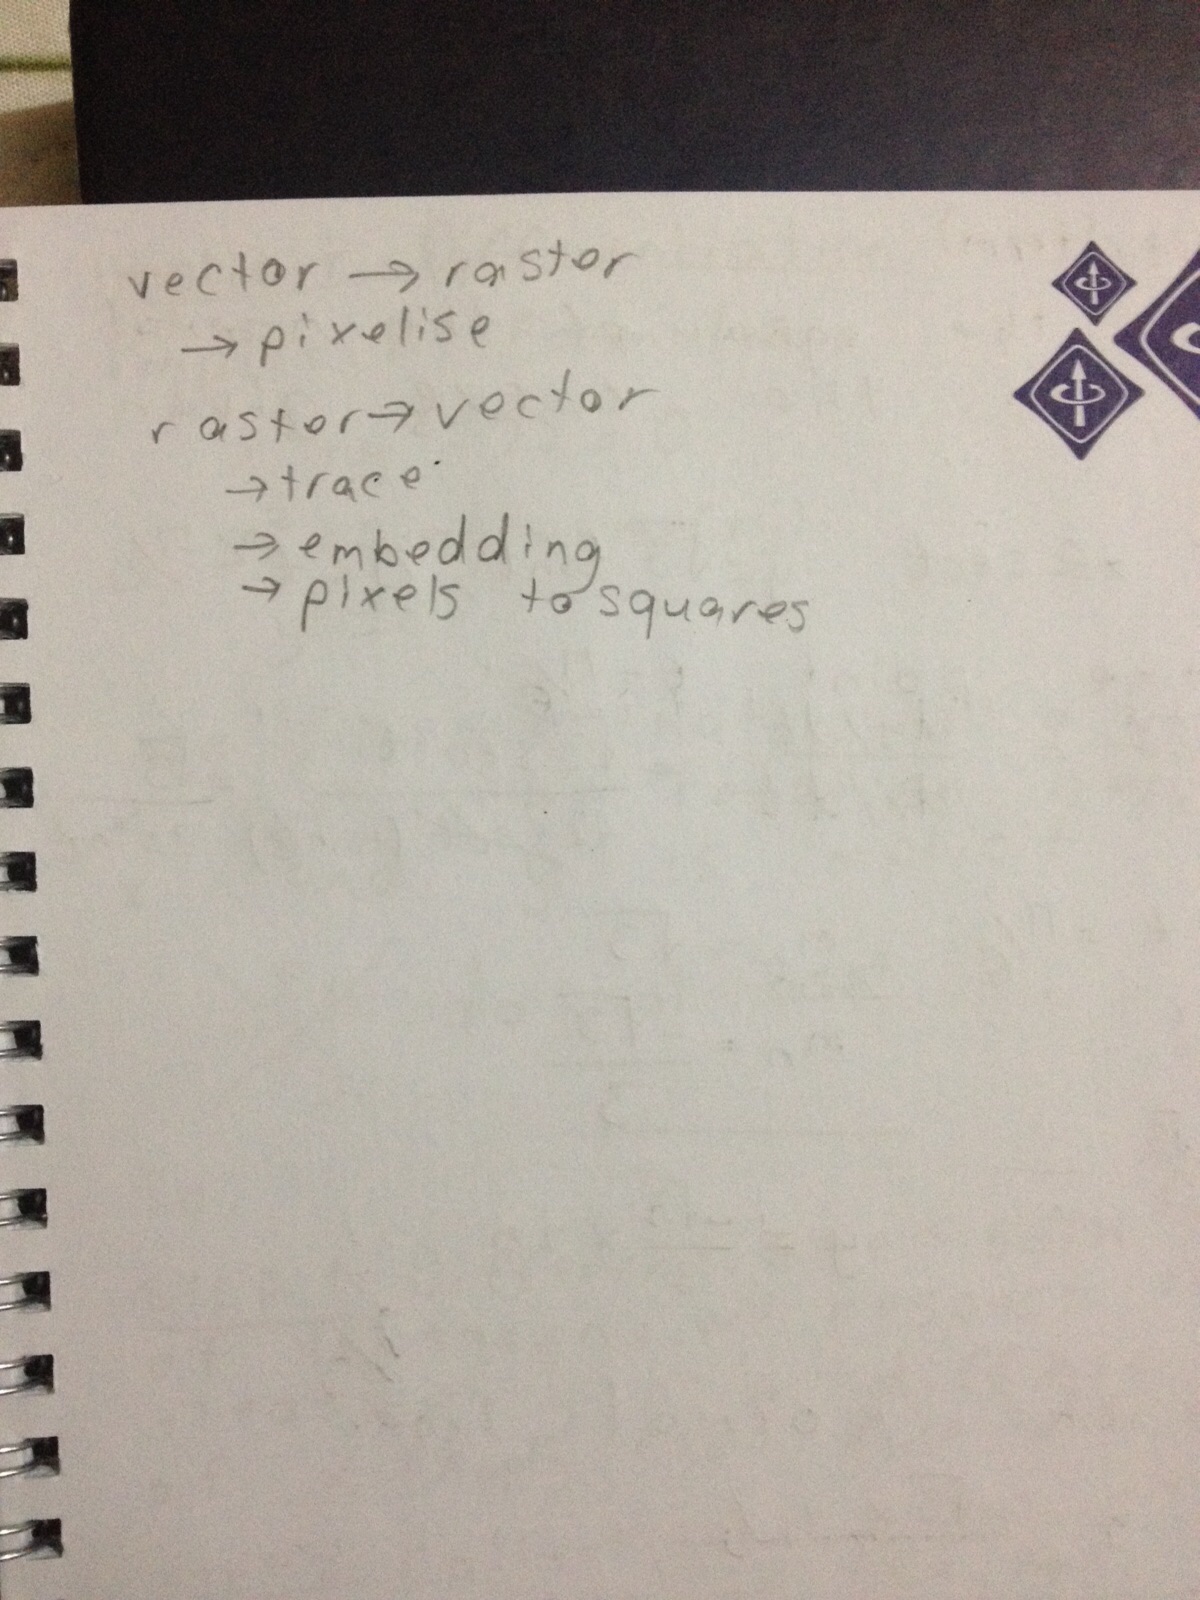 vector → rastor
→ pixelise
rastor → vector
→ trace
→ embedding
→ pixels to squares